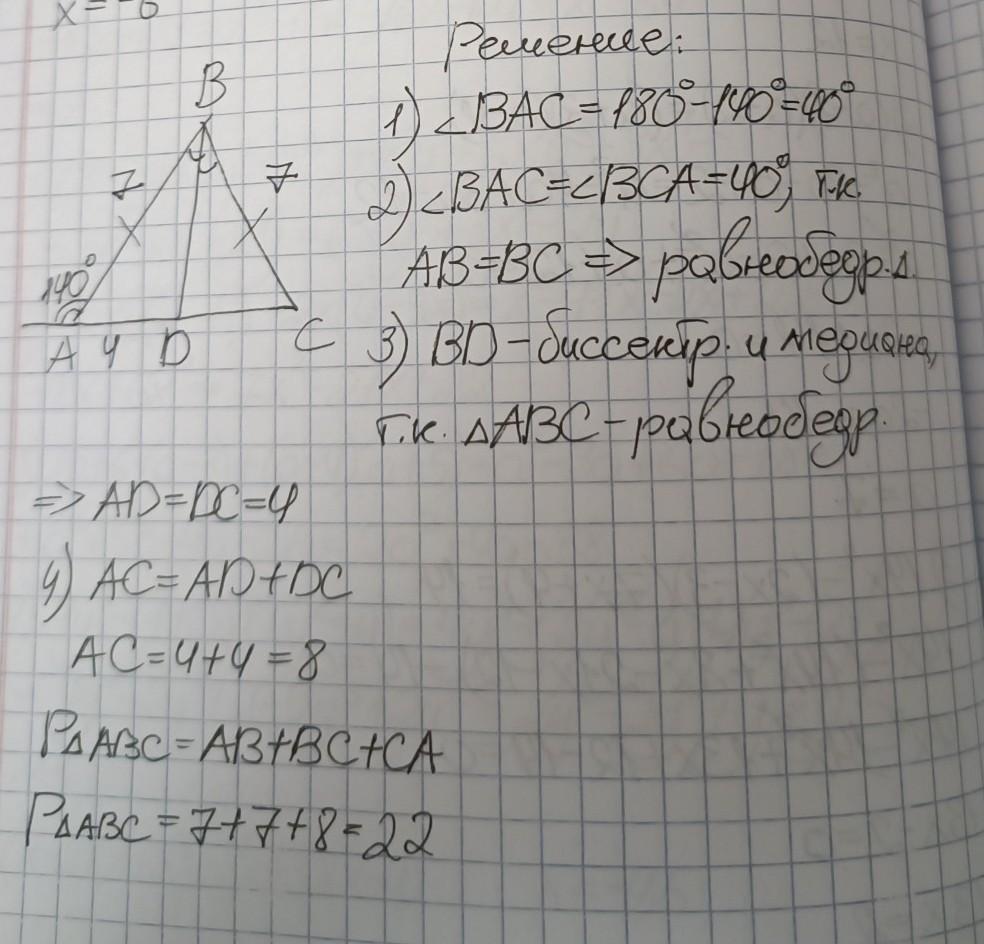 x = -6
Решение:
B
1) ∠BAC = 180° - 140° = 40°
7 7
2) ∠BAC = ∠BCA = 40°, т.к.
140°
AB = BC => равнобедр. Δ.
A 4 D C
3) BD - биссектр. и медиана,
т.к. ΔABC - равнобедр.
=> AD = DC = 4
4) AC = AD + DC
AC = 4 + 4 = 8
PΔABC = AB + BC + CA
PΔABC = 7 + 7 + 8 = 22